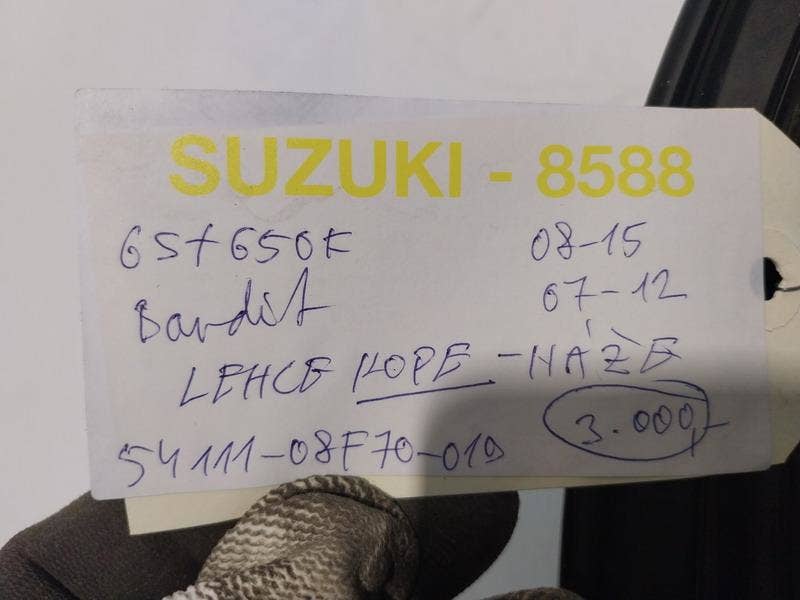 SUZUKI - 8588
GSF650F 08-15
Bandit 07-12
LEHCE KOPE - HÁŽE
54111-08F70-019
3.000,-